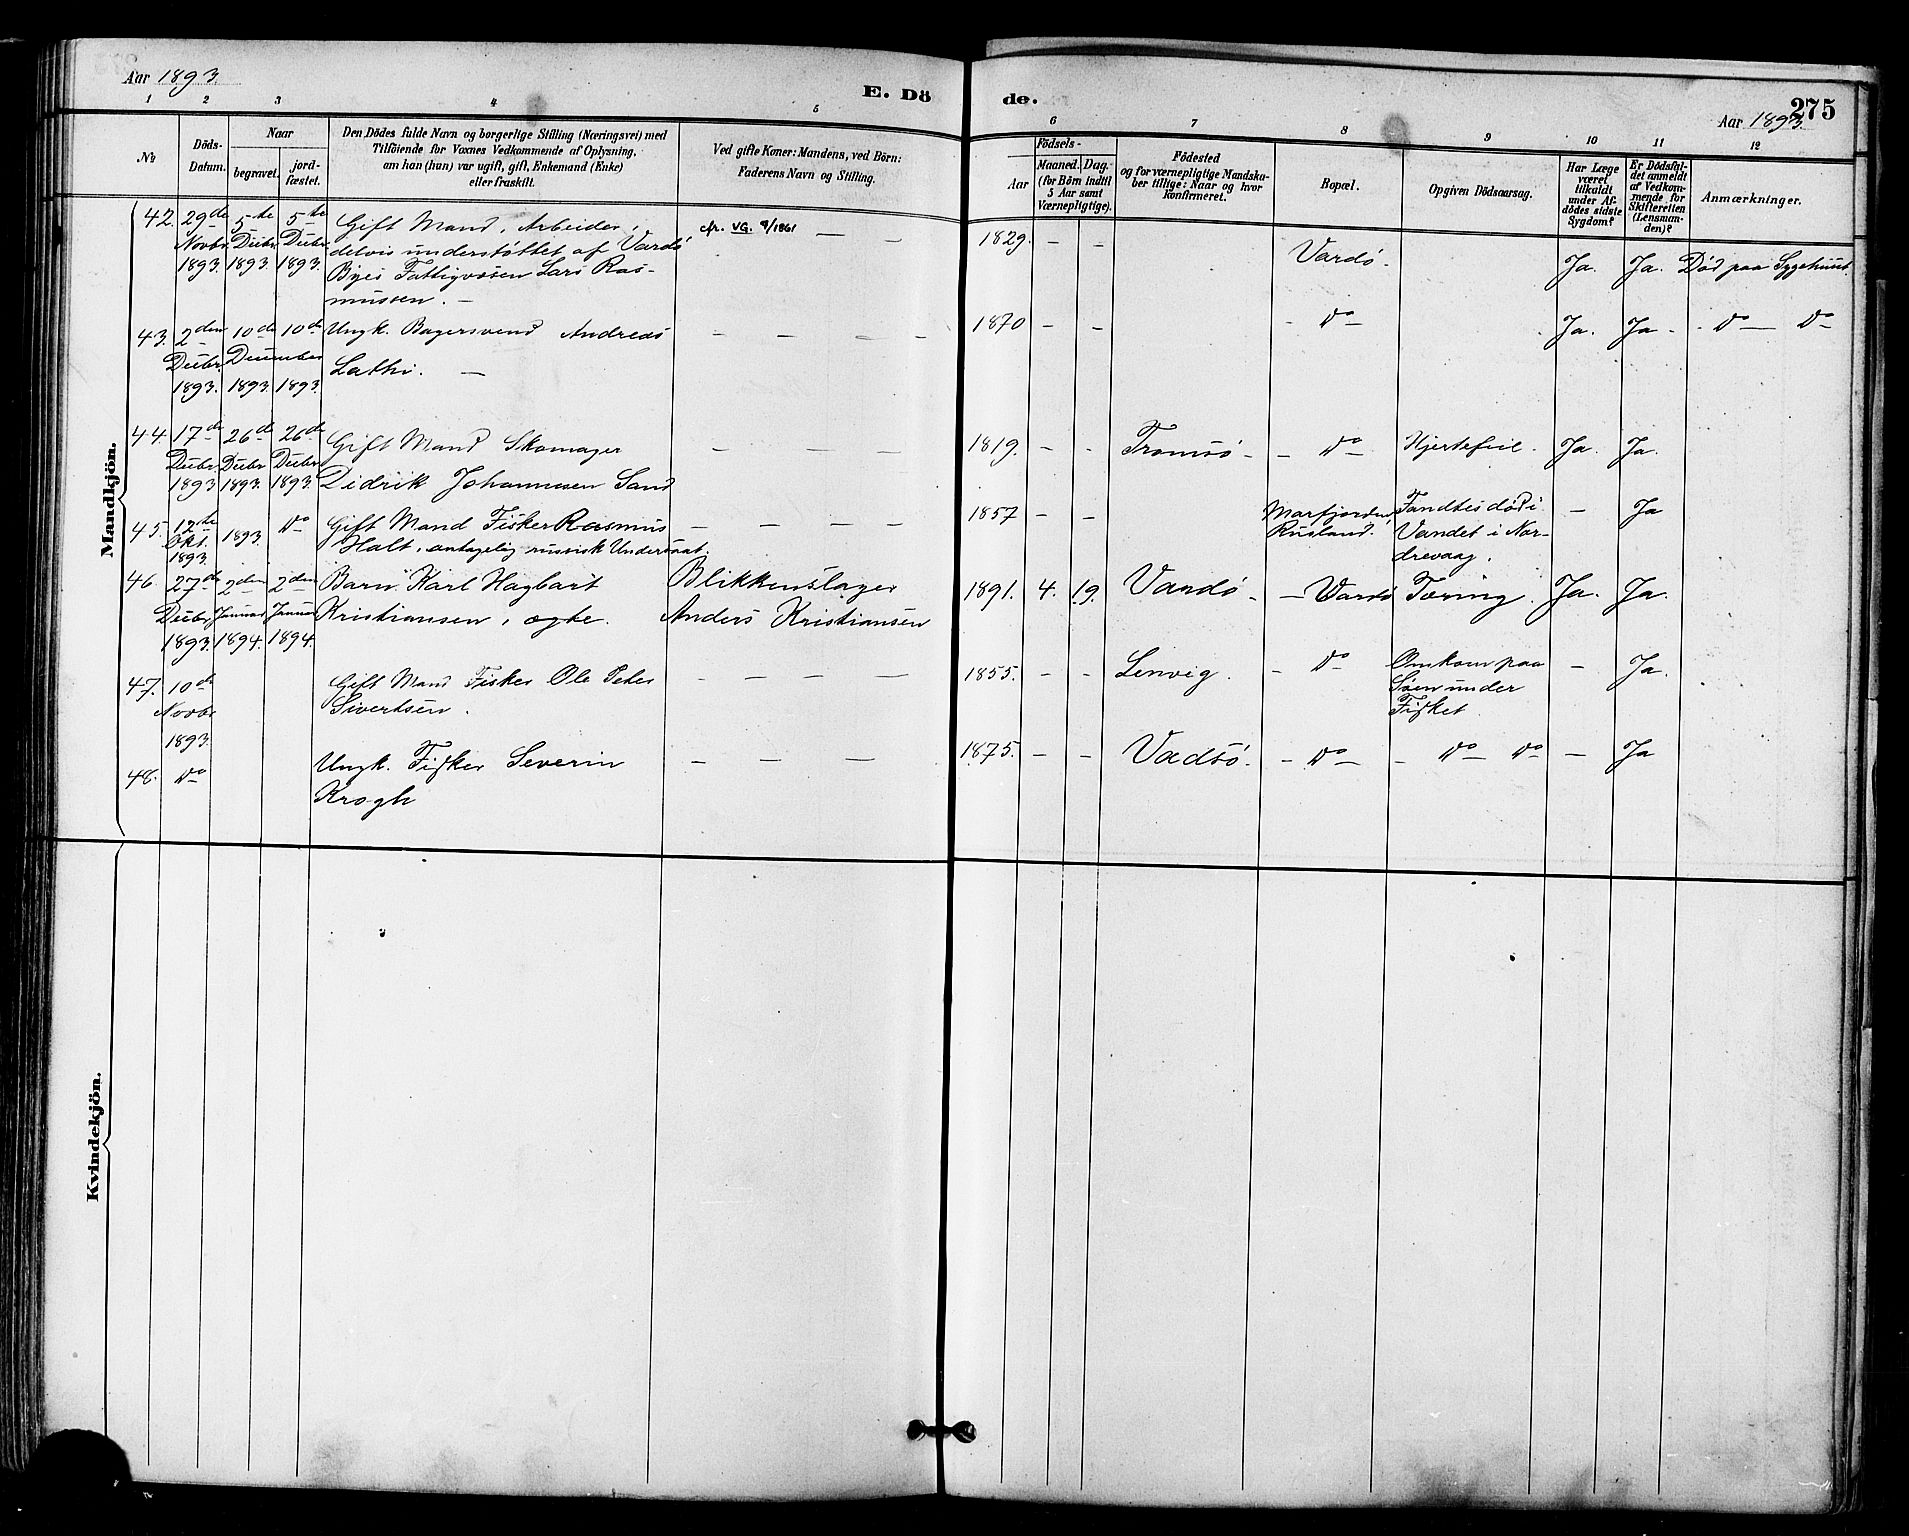 Aar 1893.
E. Dö
de.
275
Aar 1893
1 2 3 4 5 6 7 8 9 10 11 12
No
Döds-
Datum.
Naar
begravet.
jord-
fæstet.
Den Dödes fulde Navn og borgerlige Stilling (Næringsvei) med
Tilföiende for Voxnes Vedkommende af Oplysning,
om han (hun) var ugift, gift, Enkemand (Enke)
eller fraskilt.
Ved gifte Koner: Mandens, ved Börn:
Faderens Navn og Stilling.
Födsels-
Aar
Maaned. Dag.
(for Börn indtil
5 Aar samt
Værnepligtige).
Födested
og for værnepligtige Mandska-
ber tillige: Naar og hvor
konfirmeret.
Bopæl.
Opgiven Dödsaarsag.
Har Læge
været
tilkaldt
under Af-
dödes sidste
Sygdom?
Er Dödsfal-
det anmeldt
af Vedkom-
mende for
Skifteretten
(Lensman-
den)?
Anmærkninger.
Mandkjön.
42. 29de Novbr. 1893. 5te Decbr. 1893. 5te Decbr. 1893.
Gift Mand, Arbeider,
delvis understøttet af Vardø
Byes Fattigvæsen Lars Ras-
mussen. —
cfr. VG. 9/1861 — —
1829. — — Vardø. Ja. Ja. Død paa Sygehuset.
43. 2den Decbr. 1893. 10de December 1893. 10de 1893.
Ungk. Bagersvend Andreas
Lathi. —
— — — —
1870 — — — Do — Ja. Ja. — Do — Do
44. 17de Decbr. 1893 26de Decbr 1893. 26de Decbr. 1893.
Gift Mand Skomager
Didrik Johannesen Sand
— — —
1819. — — Tromsø — — Do — Hjertefeil. Ja. Ja.
45. 12te Okt. 1893. 1893. Do
Gift Mand Fisker Rasmus
Halt, antagelig russisk Undersaat.
— — — —
1857 — — Marfjorden,
Rusland. Fandtes død i
Vandet i Nor-
drevaag. — Ja
46. 27de Decbr. 1893. 2den Januar 1894. 2den Januar 1894.
Barn Karl Hagbart
Kristiansen, ægte.
Blikkenslager
Anders Kristiansen
1891. 4. 19. Vardø. — Vardø Tæring. Ja. Ja.
47. 10de Novbr 1893.
Gift Mand Fisker Ole Peter
Sivertsen.
— — — —
1855. — — Lenvig. — Do Omkom paa
Søen under
Fisket. — Ja.
48. Do
Ungk. Fisker Severin
Krogh
— — —
1875. — — Vadsø. — Do — — Do — Do — Ja
Kvindekjön.